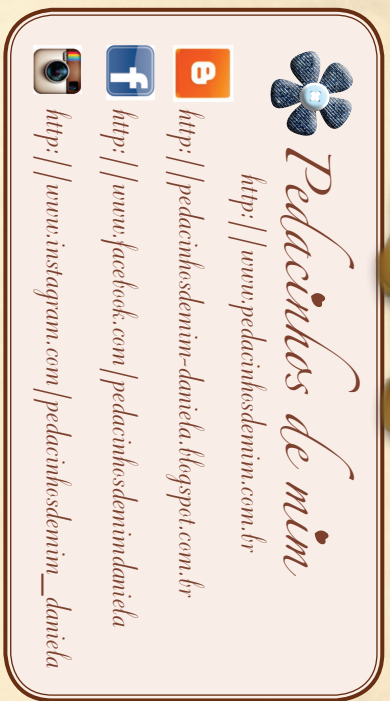 Pedacinhos de mim
http://www.pedacinhosdemim.com.br
http://pedacinhosdemim-daniela.blogspot.com.br
http://www.facebook.com/pedacinhosdemimdaniela
http://www.instagram.com/pedacinhosdemim_daniela